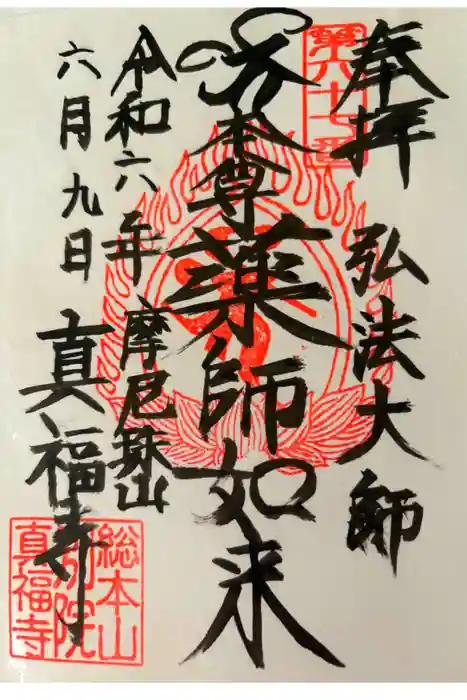 奉拝 弘法大師
第六七番
本尊薬師如来
令和六年 摩尼珠山
六月九日 真福寺
総本山
別院
真福寺